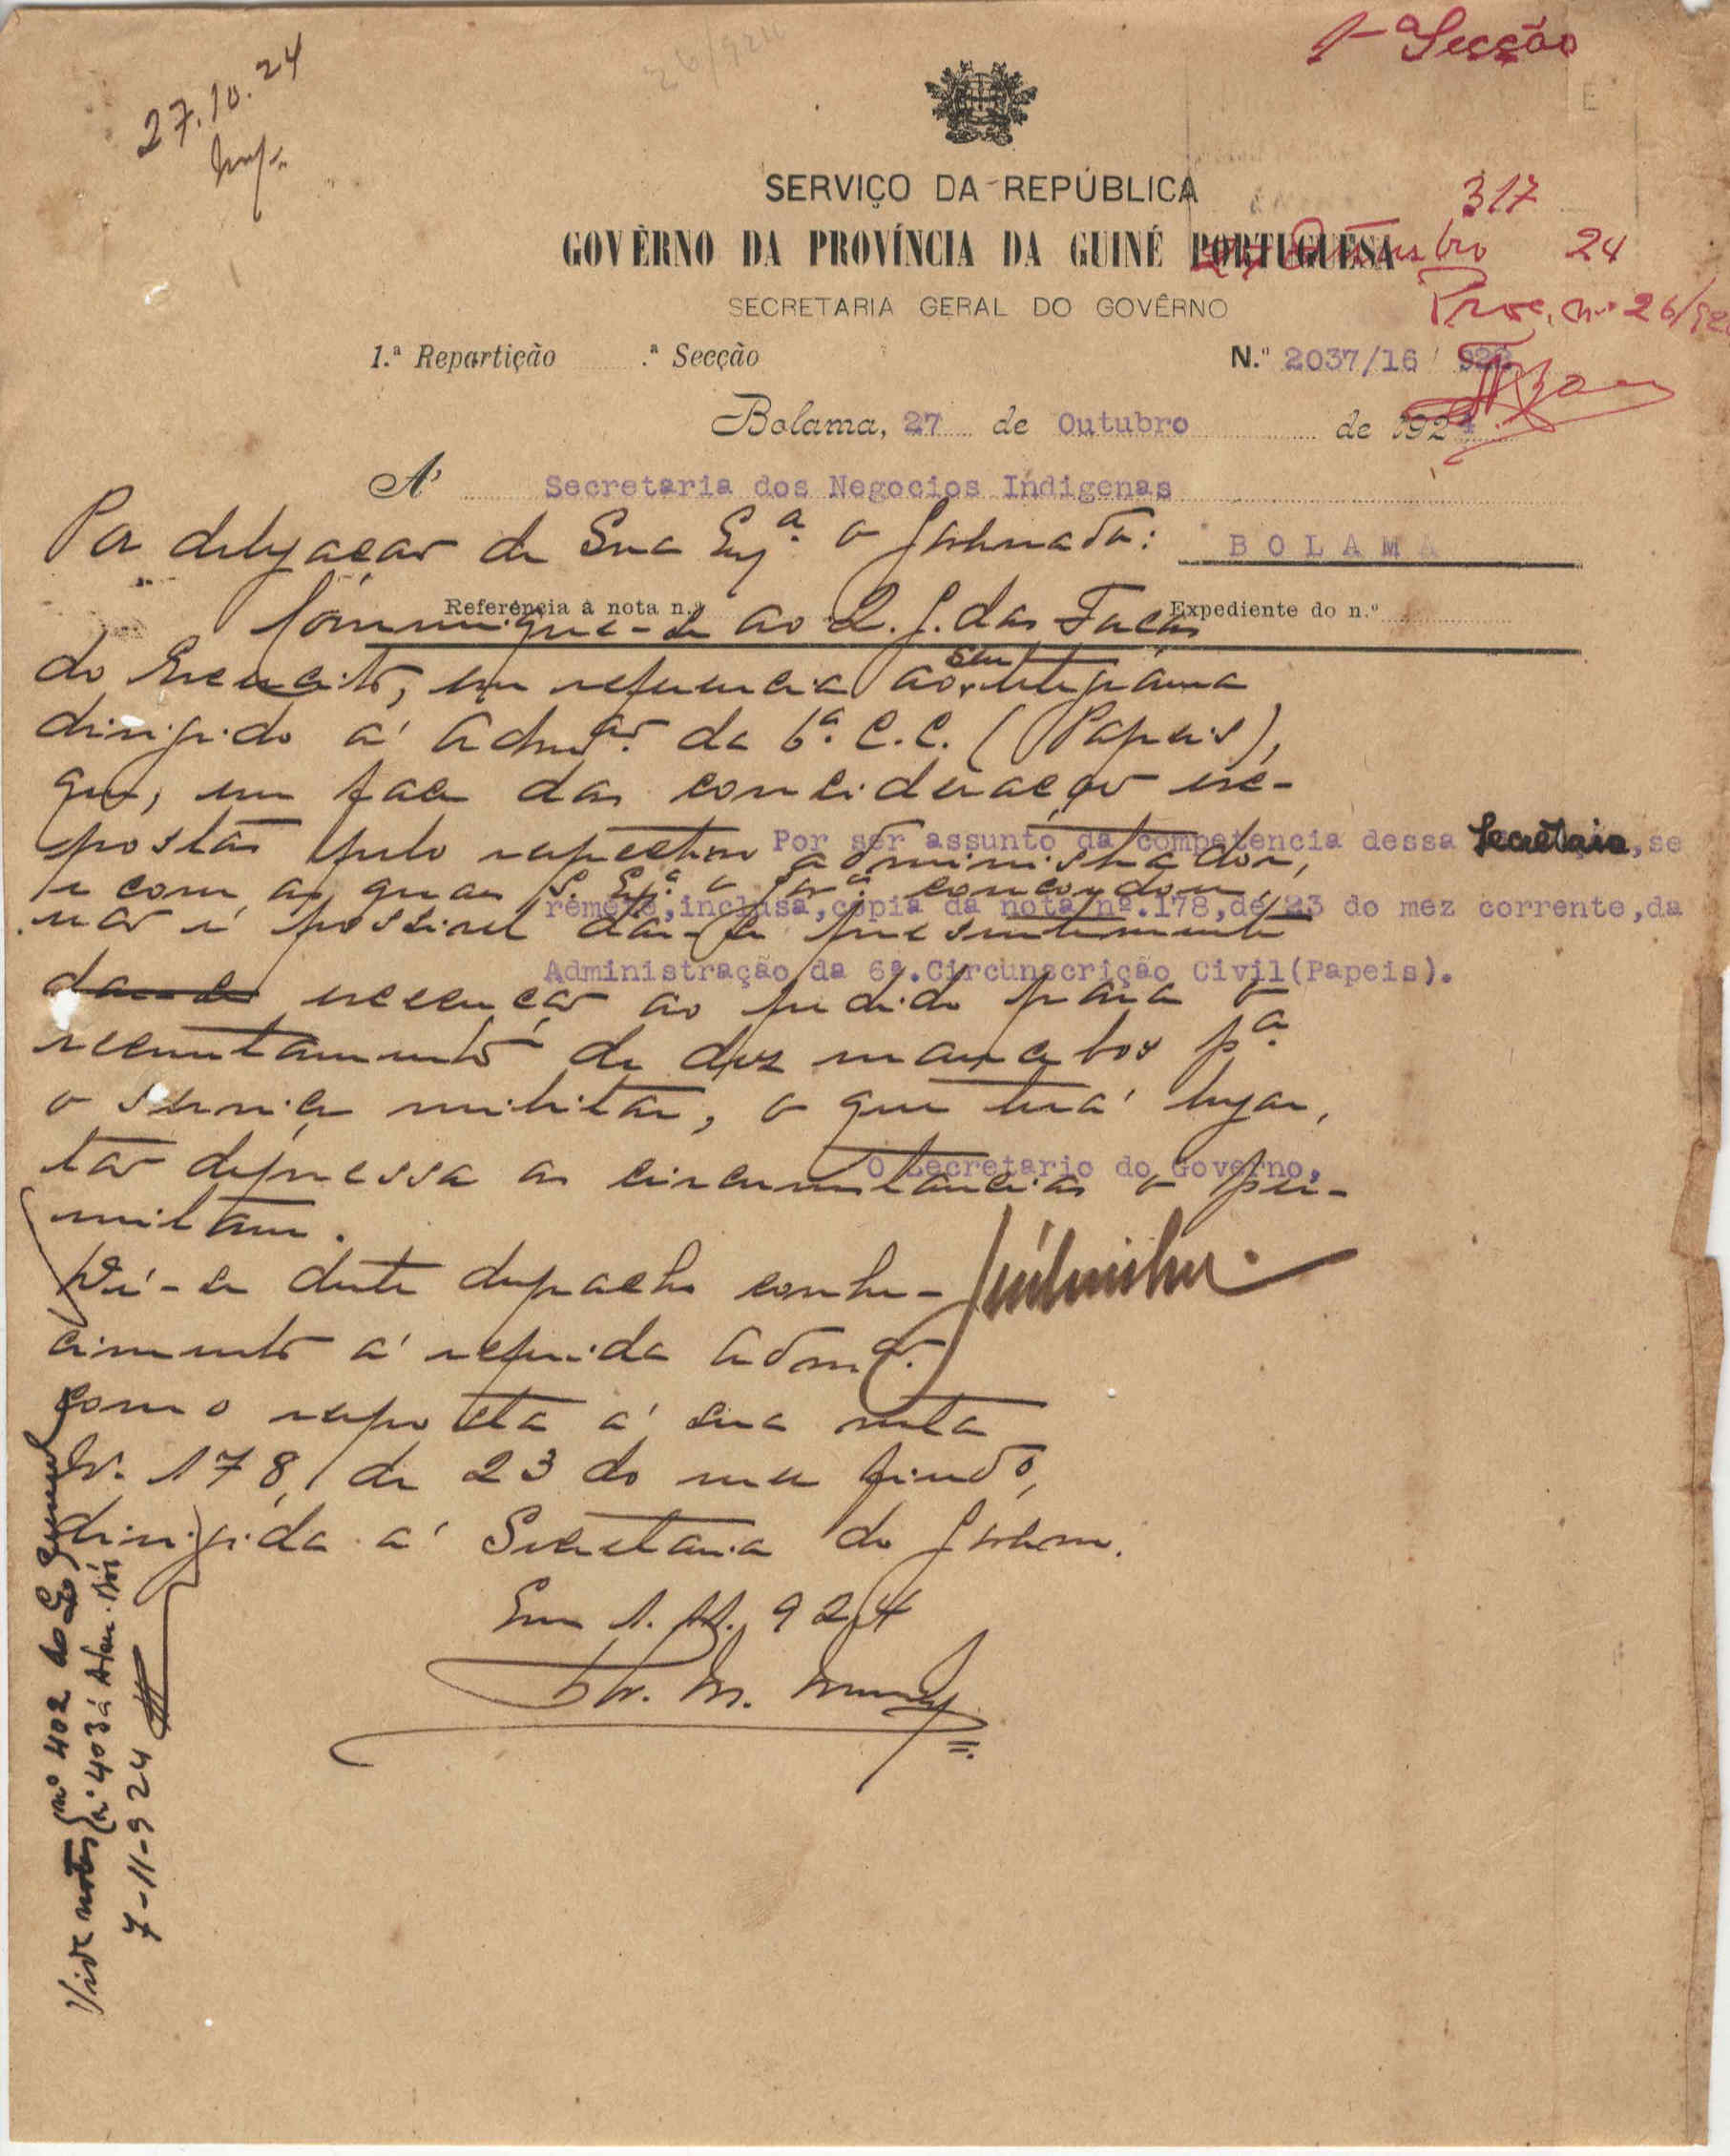 1ª Secção
27.10.24
26/924
SERVIÇO DA REPÚBLICA
317
GOVÊRNO DA PROVÍNCIA DA GUINÉ PORTUGUESA
27 Outubro 24
SECRETARIA GERAL DO GOVÊRNO
Proc. nº 26/92
1.ª Repartição .ª Secção N.º 2037/16/922
Bolama, 27 de Outubro de 1924
A' Secretaria dos Negocios Indigenas
BOLAMA
Referência à nota n.º Expediente do n.º
Por ser assunto da competencia dessa Secretaria, se
remete, inclusa, copia da nota nº.178, de 23 do mez corrente, da
Administração da 6ª. Circunscrição Civil (Papeis).
O Secretario do Governo,
Por delegação de Sua Exª. o Governador:
Communique-se ao Q. G. das Forças
do Exercito, em referencia ao seu telegrama
dirigido á Admᵃᵒ. da 6ª. C. C. (Papeis),
que, em face das considerações ex-
postas pelo respectivo administrador,
e com as quaes S. Exª. o Govºʳ concordou,
não é possivel dar-se presentemente
dar-se execução ao pedido para o
recrutamento de dez mancebos pª.
o serviço militar, o que terá lugar,
tão depressa as circumstancias o per-
mitam.
Dê-se deste despacho conhe-
cimento á referida Admᵃᵒ.
como resposta á sua nota
Nº. 178, de 23 do mez findo,
dirigida á Secretaria do Governo.
Em 1.11.924
Vide notas nº 402 ao Q. General
nº 403 á Adm.
7-11-924